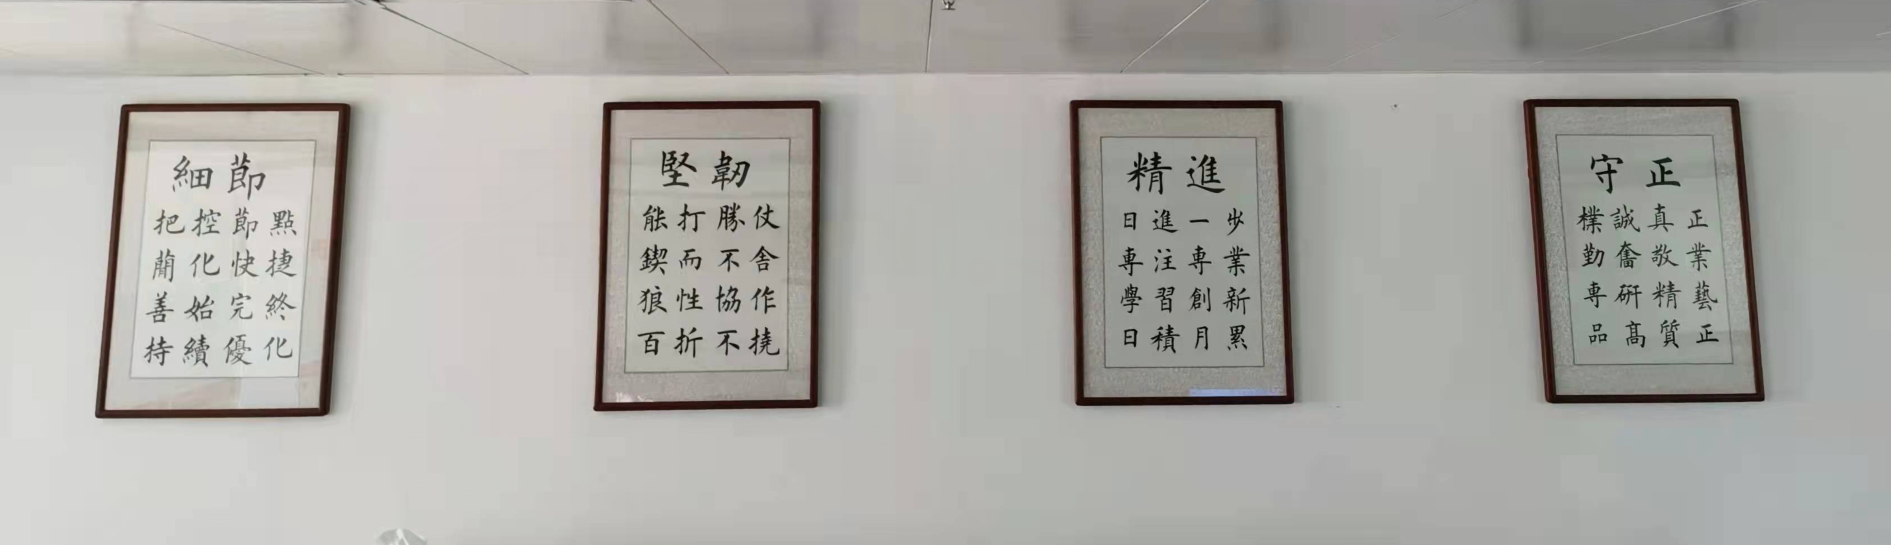 細節
把控節點
蕳化快捷
善始完終
持續優化
堅韌
能打勝仗
鍥而不舍
狼性協作
百折不撓
精進
日進一步
專注專業
學習創新
日積月累
守正
樸誠真正
勤奮敬業
專研精藝
品高質正